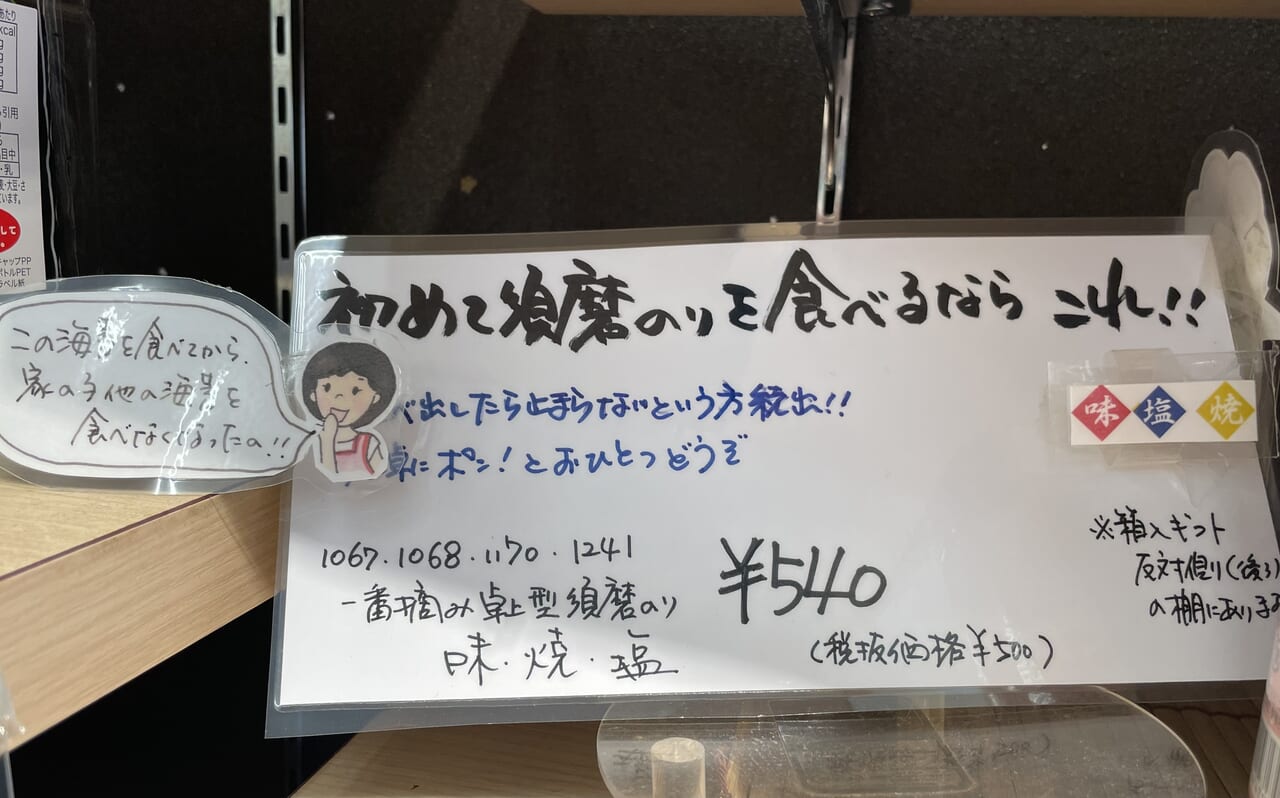 この海苔を食べてから、
家の子他の海苔を
食べなくなったの!!
初めて須磨のりを食べるなら これ!!
べ出したら止まらないという方続出!!
卓にポン!とおひとつどうぞ
味 塩 焼
1067.1068.1170.1241
一番摘み卓上型須磨のり
味・焼・塩
¥540
(税抜価格¥500)
※箱入ギフト
反対側(後ろ)
の棚にあります
あたり
kcal
g
g
g
g
引用
目中
・乳
・大豆・さ
ています。
して
キャップPP
ボトルPET
ラベル紙